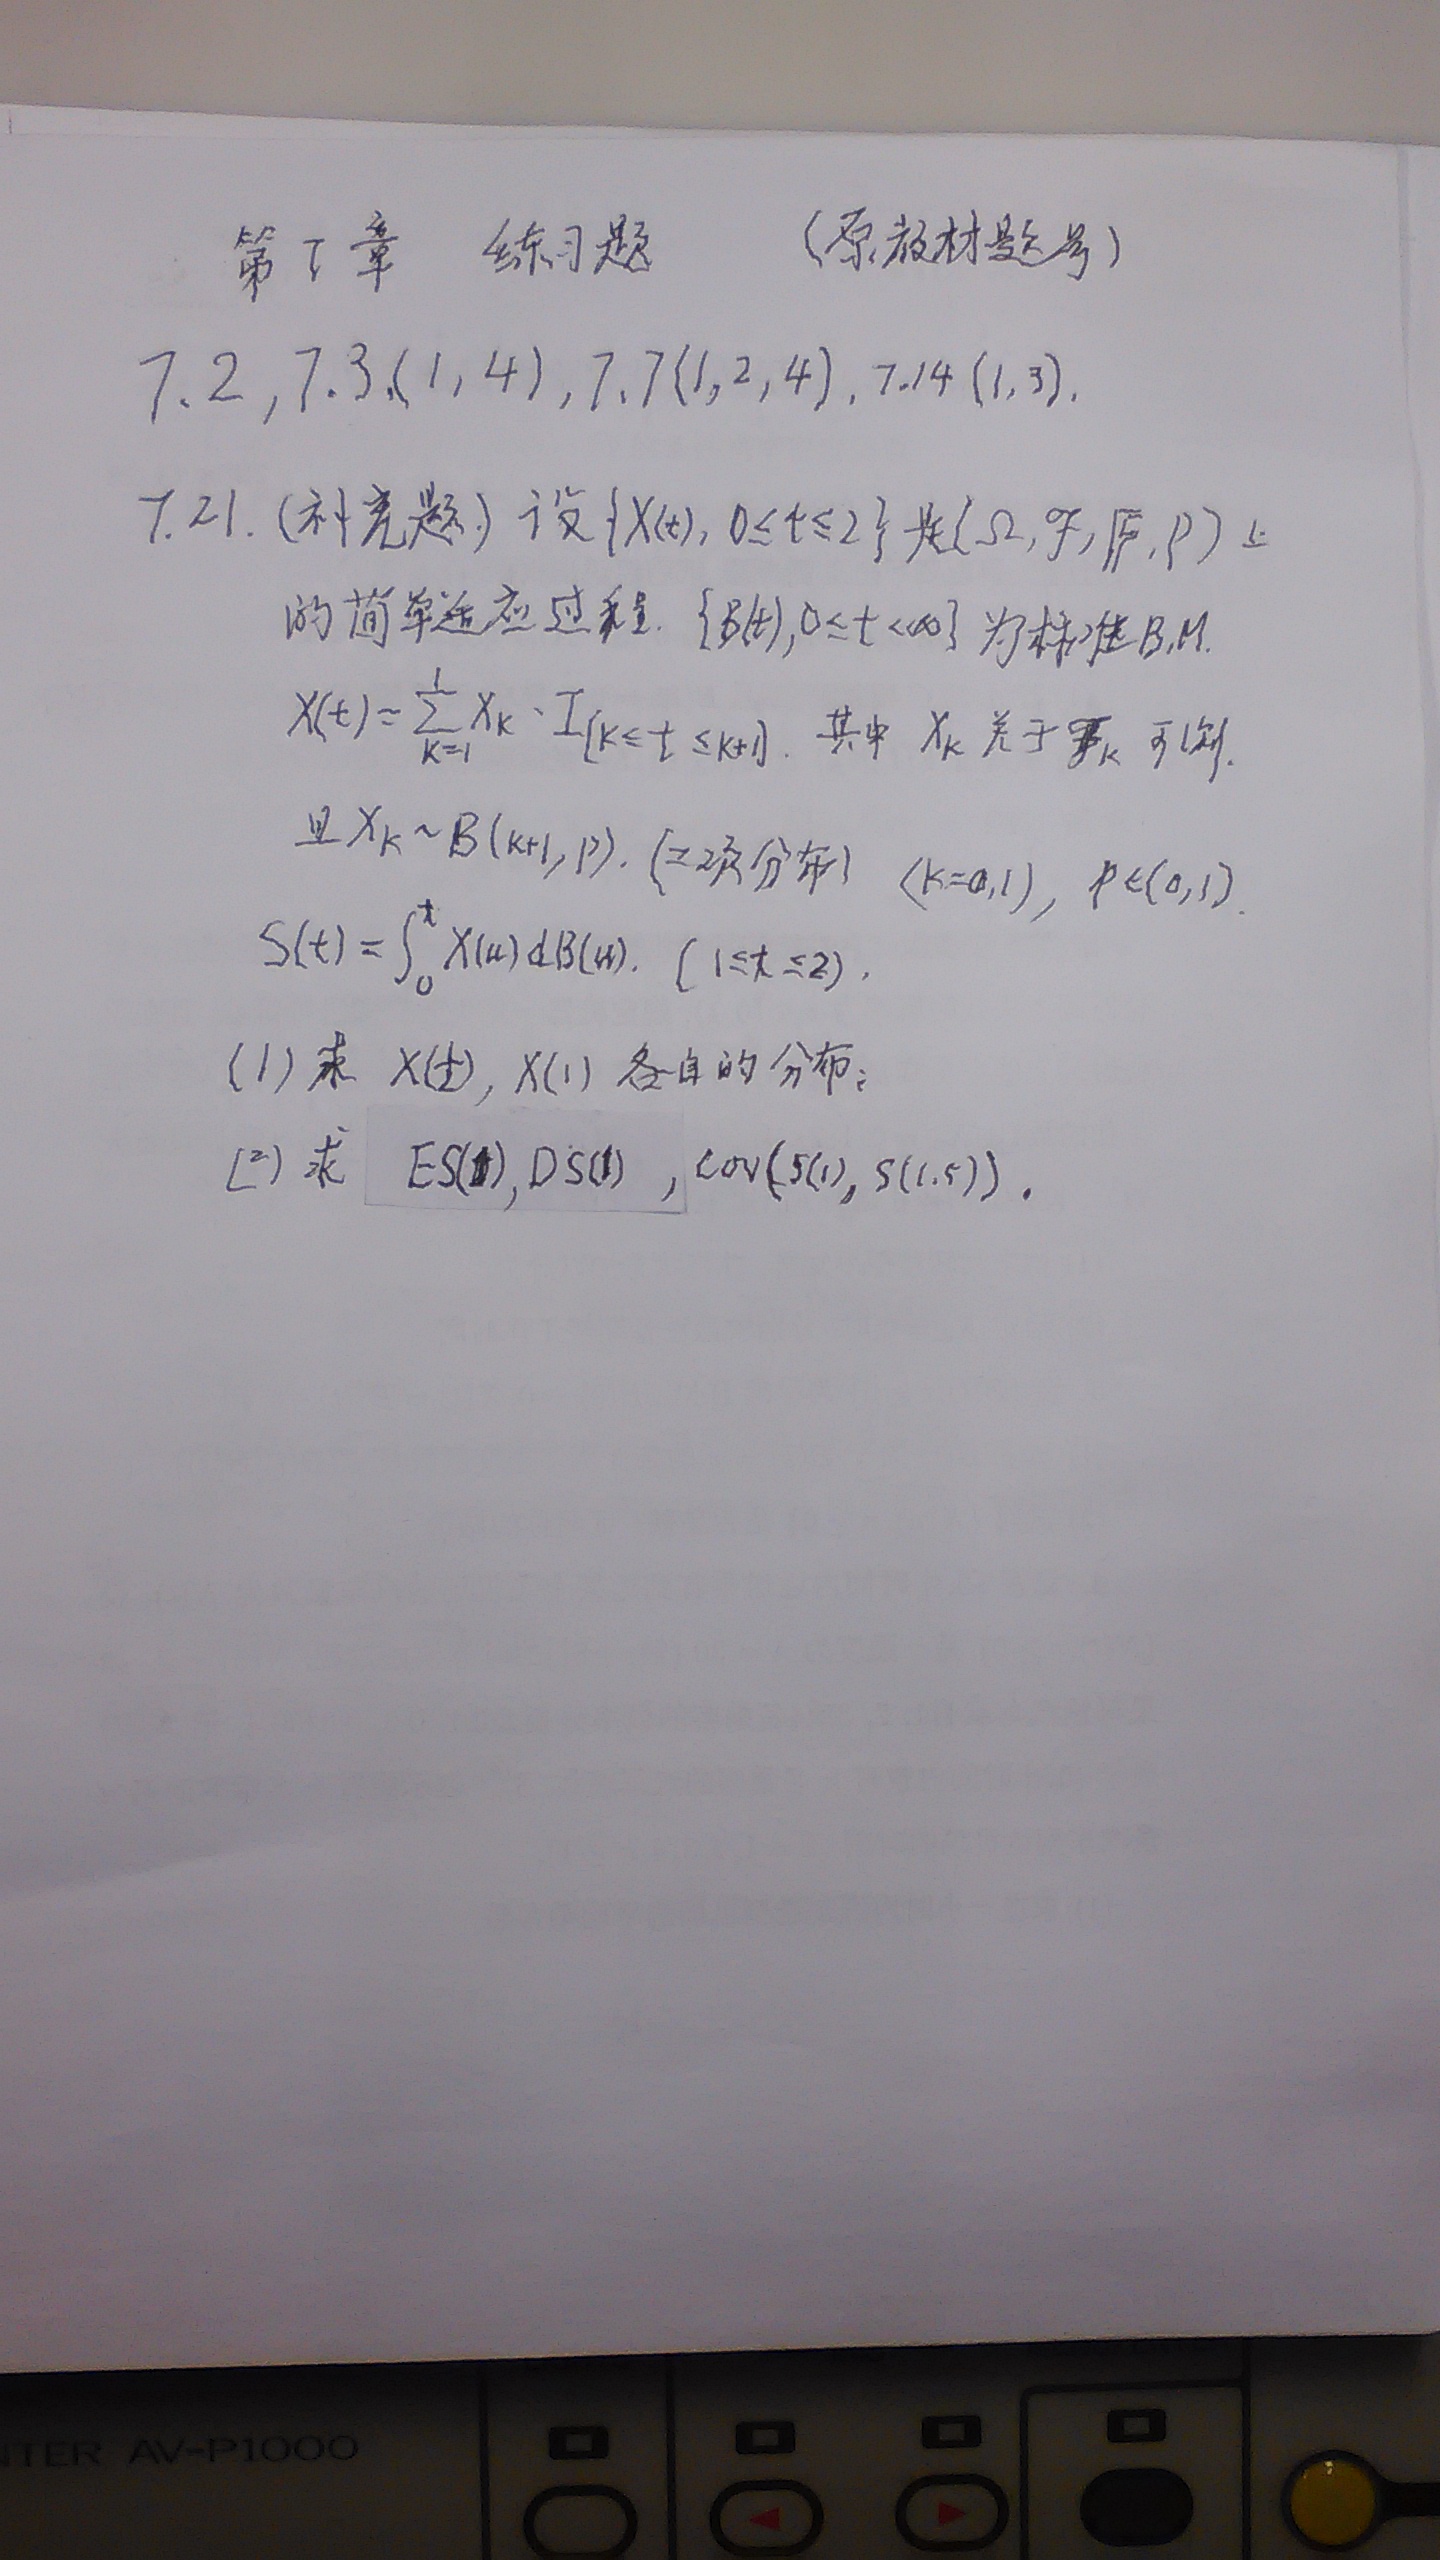 第7章 练习题 (原教材题号)
7.2, 7.3.(1,4), 7.7(1,2,4), 7.14(1,3).
7.21.(补充题) 设{X(t), 0≤t≤2}是(Ω,ℱ,𝔽,P)上
的简单适应过程. {B(t), 0≤t<∞}为标准B.M.
X(t)=∑_{k=1}^{1} X_k·I_{[k≤t≤k+1)}. 其中 X_k 关于ℱ_k 可测.
且X_k~B(k+1,p). (二项分布) (k=0,1), p∈(0,1).
S(t)=∫_0^t X(u)dB(u). (1≤t≤2).
(1) 求 X(½), X(1) 各自的分布;
(2) 求 ES(1), DS(1), Cov(S(1), S(1.5)).
NTER AV-P1000